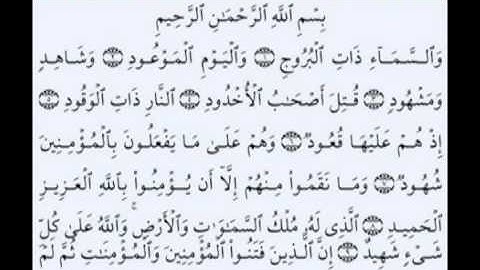 بِسْمِ ٱللَّهِ ٱلرَّحْمَـٰنِ ٱلرَّحِيمِ
وَٱلسَّمَآءِ ذَاتِ ٱلْبُرُوجِ ۝١ وَٱلْيَوْمِ ٱلْمَوْعُودِ ۝٢ وَشَاهِدٍ
وَمَشْهُودٍ ۝٣ قُتِلَ أَصْحَـٰبُ ٱلْأُخْدُودِ ۝٤ ٱلنَّارِ ذَاتِ ٱلْوَقُودِ ۝٥
إِذْ هُمْ عَلَيْهَا قُعُودٌ ۝٦ وَهُمْ عَلَىٰ مَا يَفْعَلُونَ بِٱلْمُؤْمِنِينَ
شُهُودٌ ۝٧ وَمَا نَقَمُوا۟ مِنْهُمْ إِلَّآ أَن يُؤْمِنُوا۟ بِٱللَّهِ ٱلْعَزِيزِ
ٱلْحَمِيدِ ۝٨ ٱلَّذِى لَهُۥ مُلْكُ ٱلسَّمَـٰوَٰتِ وَٱلْأَرْضِ ۚ وَٱللَّهُ عَلَىٰ كُلِّ
شَىْءٍ شَهِيدٌ ۝٩ إِنَّ ٱلَّذِينَ فَتَنُوا۟ ٱلْمُؤْمِنِينَ وَٱلْمُؤْمِنَـٰتِ ثُمَّ لَمْ